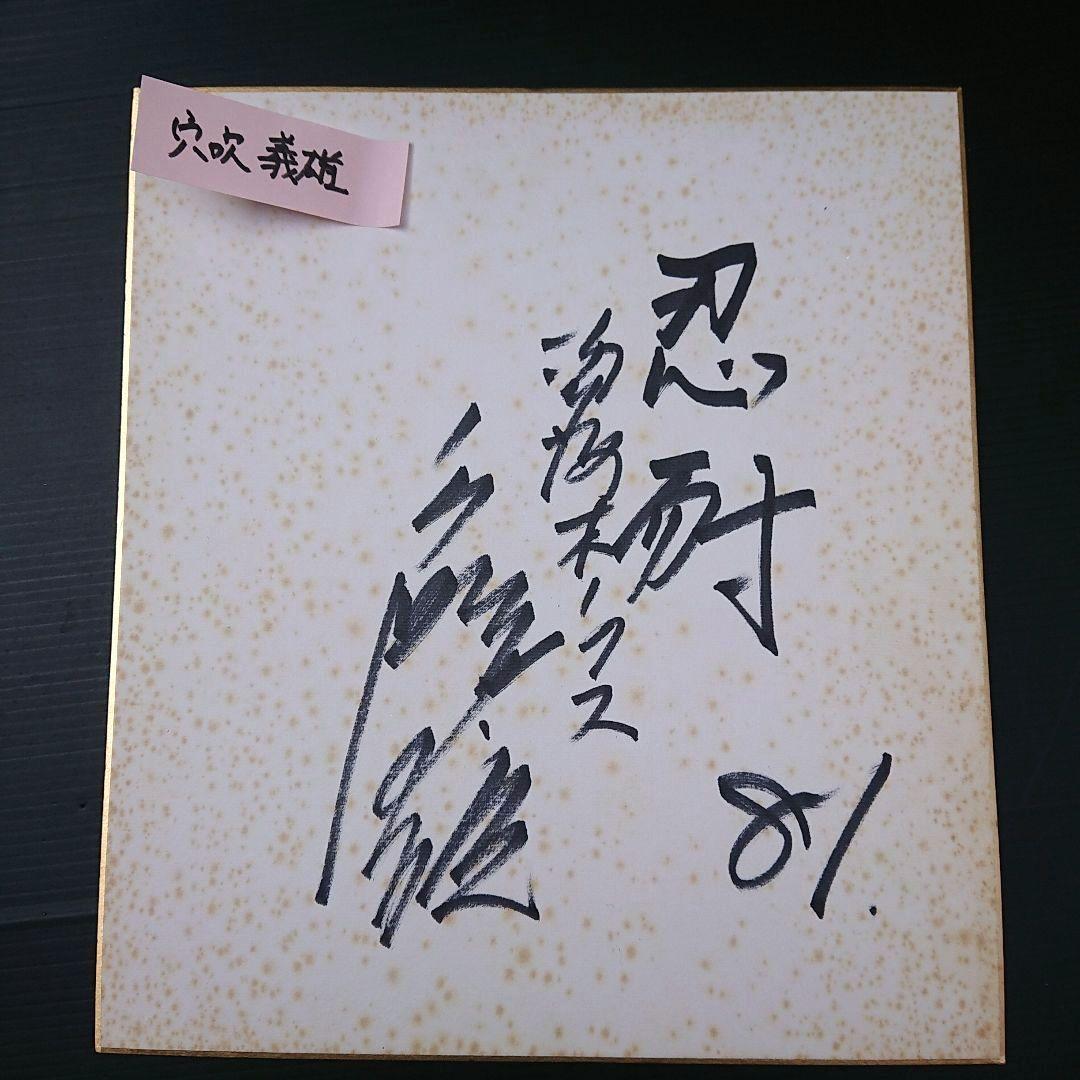 穴吹 義雄
忍耐
南海ホークス
81.